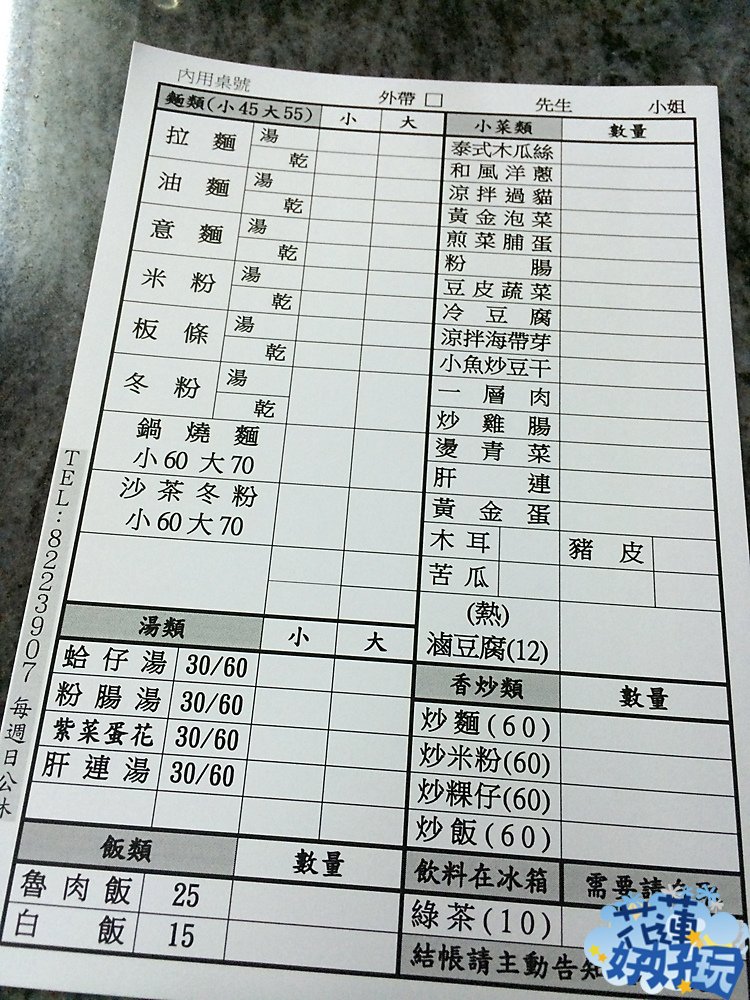 內用桌號 外帶 □ 先生 小姐
麵類(小45大55) 小 大
拉麵 湯 乾
油麵 湯 乾
意麵 湯 乾
米粉 湯 乾
板條 湯 乾
冬粉 湯 乾
鍋燒麵
小60 大70
沙茶冬粉
小60大70
湯類 小 大
蛤仔湯 30/60
粉腸湯 30/60
紫菜蛋花 30/60
肝連湯 30/60
飯類 數量
魯肉飯 25
白飯 15
小菜類 數量
泰式木瓜絲
和風洋蔥
涼拌過貓
黃金泡菜
煎菜脯蛋
粉腸
豆皮蔬菜
冷豆腐
涼拌海帶芽
小魚炒豆干
一層肉
炒雞腸
燙青菜
肝連
黃金蛋
木耳 豬皮
苦瓜
(熱)
滷豆腐(12)
香炒類 數量
炒麵(60)
炒米粉(60)
炒粿仔(60)
炒飯(60)
飲料在冰箱 需要請自
綠茶(10)
結帳請主動告知
TEL:8223907 每週日公休
花蓮
好好玩